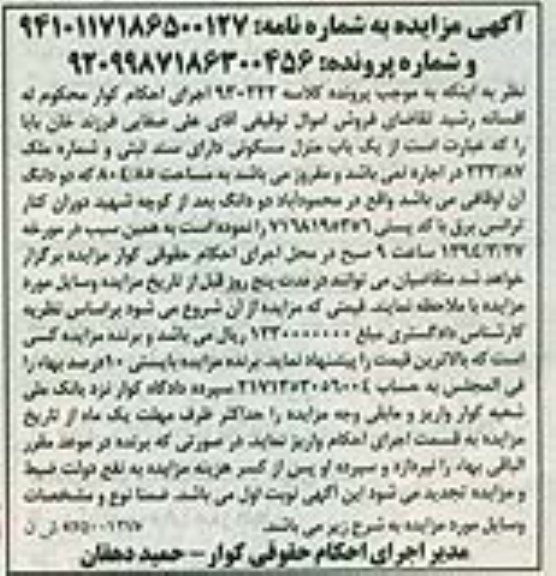 آگهی مزایده به شماره نامه: ۹۴۱۰۱۱۷۱۸۶۵۰۰۱۲۷
و شماره پرونده: ۹۲۰۹۹۸۷۱۸۶۳۰۰۴۵۶
نظر به اینکه به موجب پرونده کلاسه ۹۳۰۲۲۲ اجرای احکام کوار محکوم له
افسانه رشید تقاضای فروش اموال توقیفی آقای علی صفایی فرزند خان بابا
را که عبارت است از یک باب منزل مسکونی دارای سند ثبتی و شماره ملک
در اجاره نمی باشد و مفروز می باشد به مساحت که دو دانگ
آن اوقافی می باشد واقع در محمودآباد دو دانگ بعد از کوچه شهید دوران کنار
ترانس برق با کد پستی را نموده است به همین سبب در مورخه
۱۳۹۴/۳/۲۷ ساعت ۹ صبح در محل اجرای احکام حقوقی کوار مزایده برگزار
خواهد شد متقاضیان می توانند در مدت پنج روز قبل از تاریخ مزایده وسایل مورد
مزایده را ملاحظه نمایند. قیمتی که مزایده از آن شروع می شود براساس نظریه
کارشناس دادگستری مبلغ ریال می باشد و برنده مزایده کسی
است که بالاترین قیمت را پیشنهاد نماید. برنده مزایده بایستی ۱۰درصد بهاء را
فی المجلس به حساب سپرده دادگاه کوار نزد بانک ملی
شعبه کوار واریز و مابقی وجه مزایده را حداکثر ظرف مهلت یک ماه از تاریخ
مزایده به قسمت اجرای احکام واریز نماید. در صورتی که برنده در موعد مقرر
الباقی بهاء را نپردازد و سپرده او پس از کسر هزینه مزایده به نفع دولت ضبط
و مزایده تجدید می شود این آگهی نوبت اول می باشد. ضمنا نوع و مشخصات
وسایل مورد مزایده به شرح زیر می باشد.
مدیر اجرای احکام حقوقی کوار – حمید دهقان